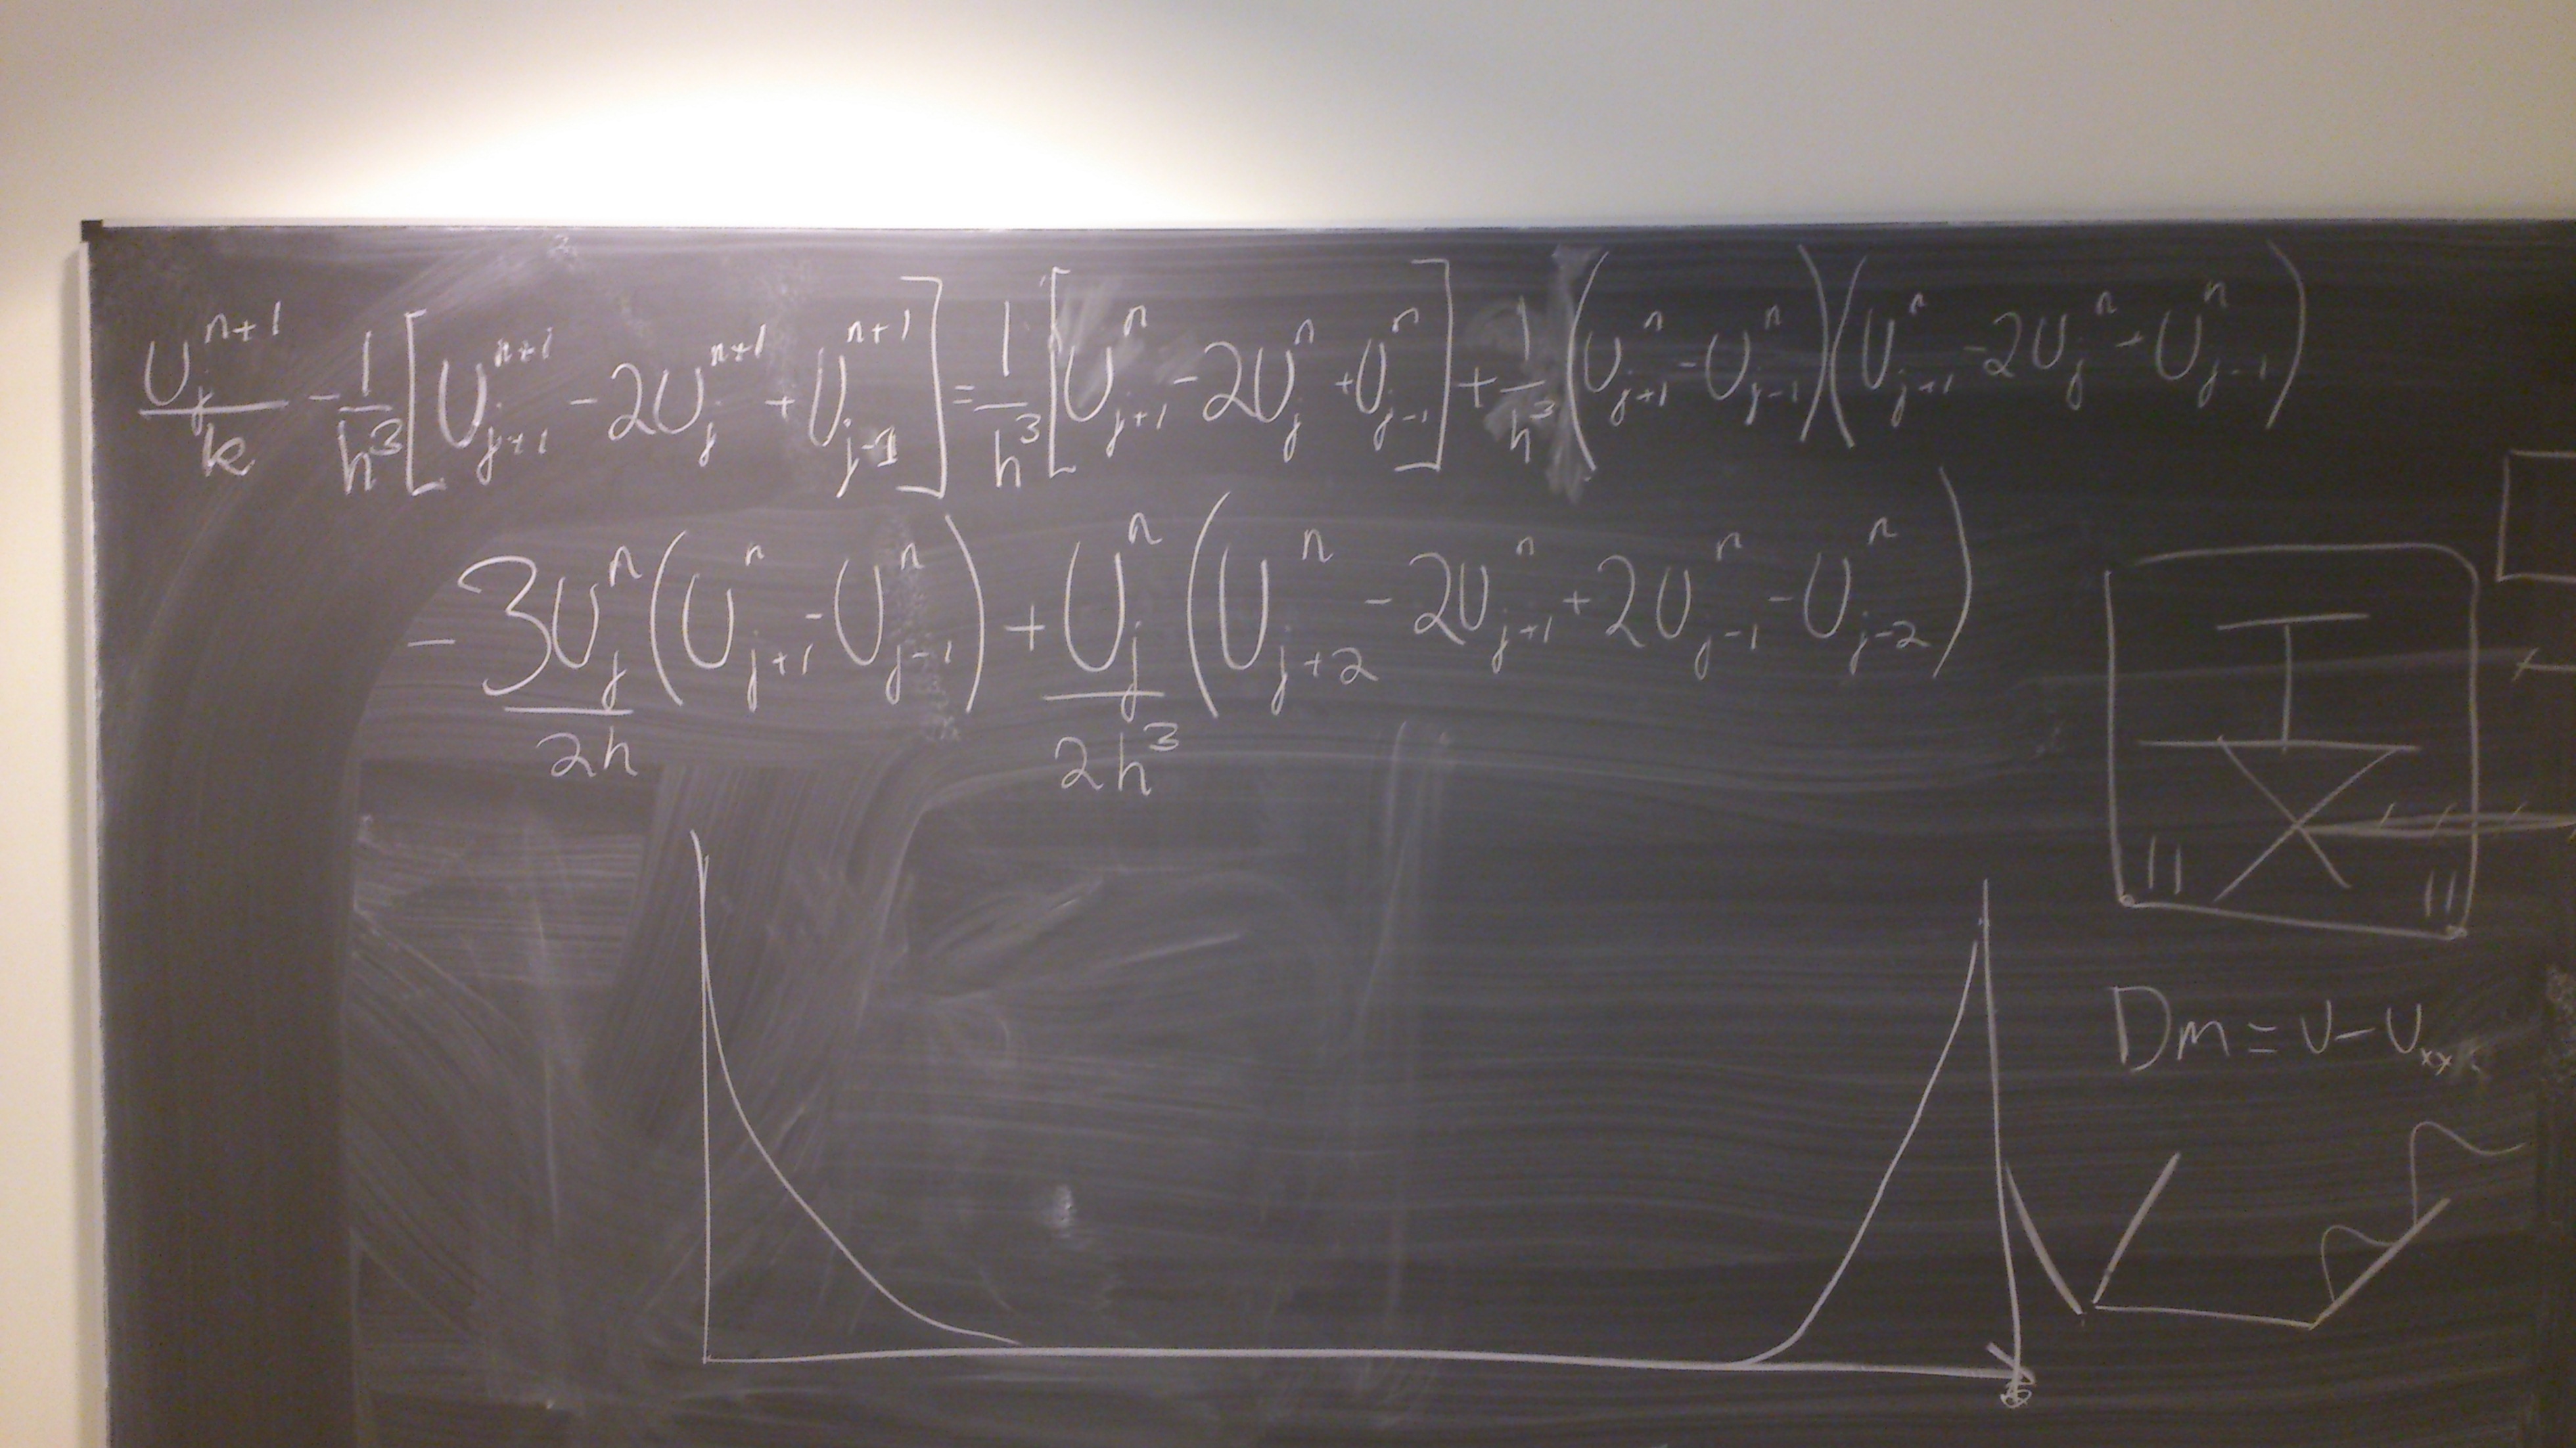 U_j^{n+1}/k - 1/h^3 [U_{j+1}^{n+1} - 2U_j^{n+1} + U_{j-1}^{n+1}] = 1/h^3 [U_{j+1}^n - 2U_j^n + U_{j-1}^n] + 1/h^3 (U_{j+1}^n - U_{j-1}^n)(U_{j+1}^n - 2U_j^n + U_{j-1}^n)
- 3U_j^n/2h (U_{j+1}^n - U_{j-1}^n) + U_j^n/2h^3 (U_{j+2}^n - 2U_{j+1}^n + 2U_{j-1}^n - U_{j-2}^n)
Dm = U - U_{xx}